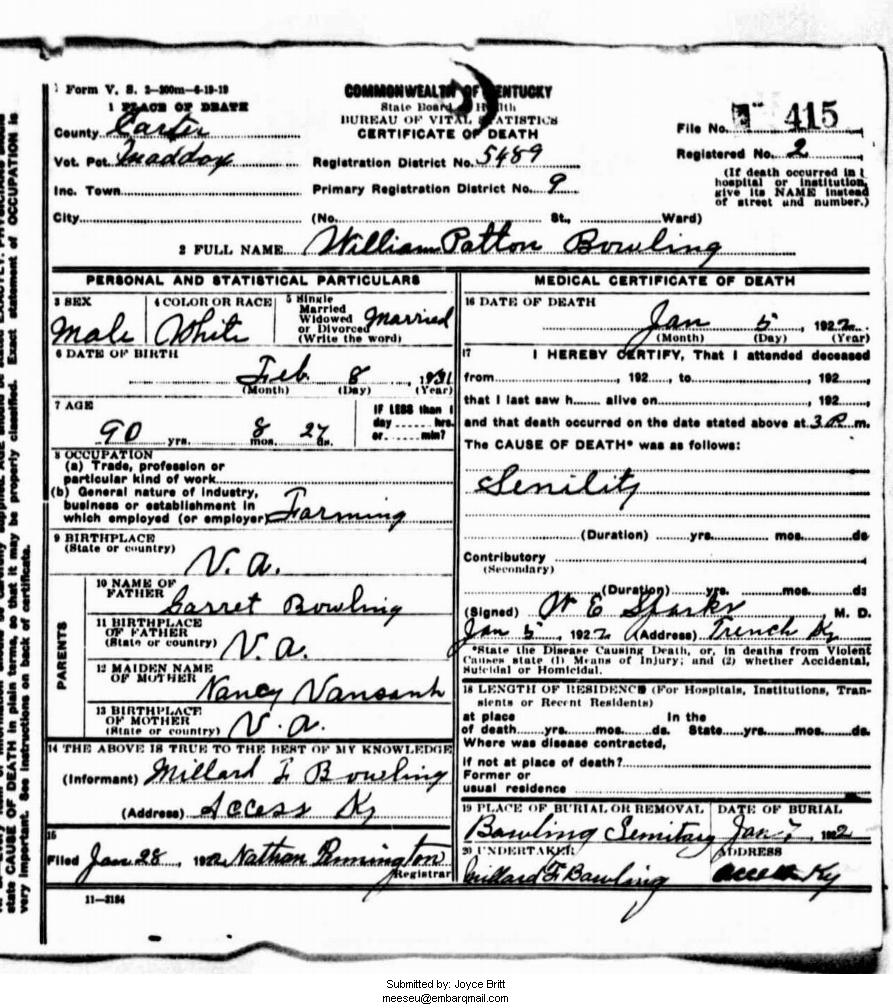 Form V. S. 2—200m—6-19-19
COMMONWEALTH OF KENTUCKY
State Board of Health
BUREAU OF VITAL STATISTICS
CERTIFICATE OF DEATH
1 PLACE OF DEATH
County Carter
Vot. Pct. Maddox
Inc. Town
City
Registration District No. 5489
Primary Registration District No. 9
(No. St., Ward)
File No. 415
Registered No. 2
(If death occurred in
hospital or institution,
give its NAME instead
of street and number.)
2 FULL NAME William Patton Bowling
PERSONAL AND STATISTICAL PARTICULARS
3 SEX
Male
4 COLOR OR RACE
White
5 Single
Married
Widowed
or Divorced
(Write the word)
Married
6 DATE OF BIRTH
Feb 8
(Month) (Day) (Year)
7 AGE
90 yrs. 8 mos. 27 ds.
IF LESS than 1
day hrs.
or min?
8 OCCUPATION
(a) Trade, profession or
particular kind of work
(b) General nature of industry,
business or establishment in
which employed (or employer) Farming
9 BIRTHPLACE
(State or country)
V. a.
PARENTS
10 NAME OF
FATHER
Garret Bowling
11 BIRTHPLACE
OF FATHER
(State or country)
V. a.
12 MAIDEN NAME
OF MOTHER
Nancy
13 BIRTHPLACE
OF MOTHER
(State or country)
V. a.
14 THE ABOVE IS TRUE TO THE BEST OF MY KNOWLEDGE
(Informant) Millard F Bowling
(Address) Access Ky
15
Filed Jan 28, 1922 Nathan
Registrar
11—3184
MEDICAL CERTIFICATE OF DEATH
16 DATE OF DEATH
Jan 5, 1922
(Month) (Day) (Year)
17 I HEREBY CERTIFY, That I attended deceased
from , 192 , to , 192 ,
that I last saw h alive on , 192 ,
and that death occurred on the date stated above at 3 P. m.
The CAUSE OF DEATH* was as follows:
Senility
(Duration) yrs. mos. ds
Contributory
(Secondary)
(Duration) yrs. mos. ds
(Signed) W E Sparks M. D.
Jan 5, 1922 (Address) Trench Ky
*State the Disease Causing Death, or, in deaths from Violent
Causes state (1) Means of Injury; and (2) whether Accidental,
Suicidal or Homicidal.
18 LENGTH OF RESIDENCE (For Hospitals, Institutions, Tran-
sients or Recent Residents)
at place In the
of death yrs. mos. ds. State yrs. mos. ds.
Where was disease contracted,
If not at place of death?
Former or
usual residence
19 PLACE OF BURIAL OR REMOVAL
Bowling Semitary
DATE OF BURIAL
Jan 7, 1922
20 UNDERTAKER
Millard F Bowling
ADDRESS
Access Ky
state CAUSE OF DEATH in plain terms, so that it may be properly classified. Exact statement of OCCUPATION is
very important. See instructions on back of certificate.
Submitted by: Joyce Britt
meeseu@embarqmail.com